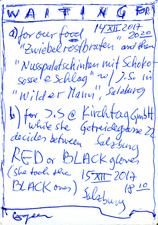 WAITING FOR
a) for our food 14 XII 2017
"Zwiebelrostbraten and then 2020
"Nusspalatschinken mit Schoko-
sosse & Schlag" w/ J.S. in
"Wilder Mann", Salzburg
b) for J.S @ Kirchtag GmbH
while she Getreidegasse 22
decides between Salzburg
RED or BLACK gloves
(she took the 15 XII 2017
BLACK ones) 18 10
Salzburg